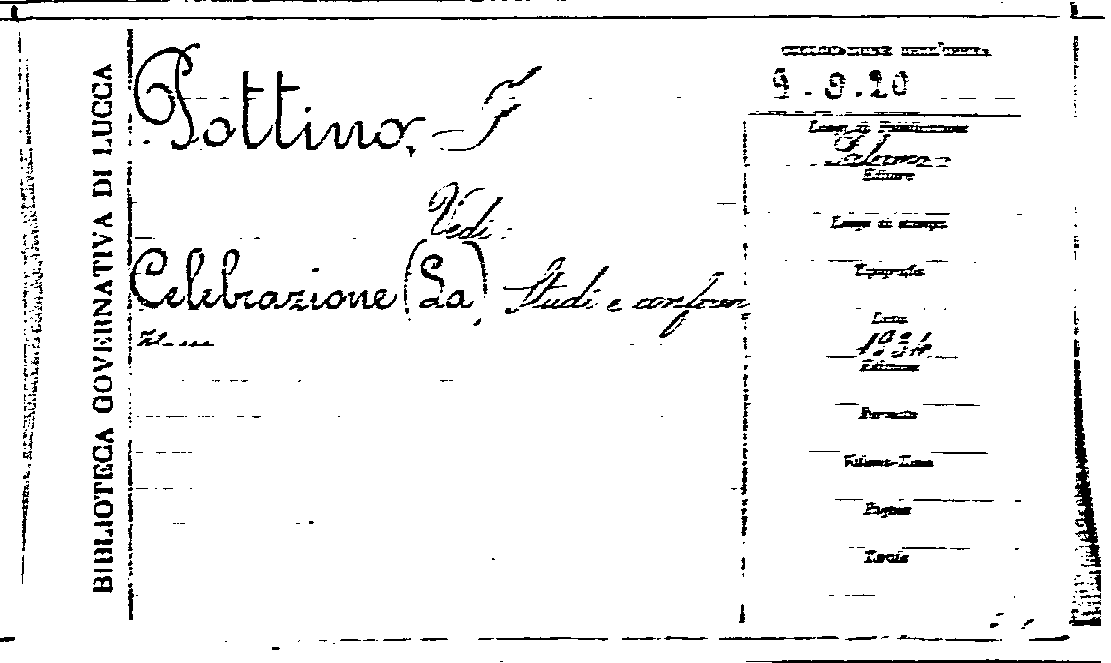 BIBLIOTECA GOVERNATIVA DI LUCCA
Pottino, F
Vedi:
Celebrazione (La) Studi e conferen
9.9.20
Luogo di Pubblicazione
Palermo
Editore
Luogo di stampa
Tipografia
Data
1934
Edizione
Formato
Volume-Tomo
Pagine
Tavole